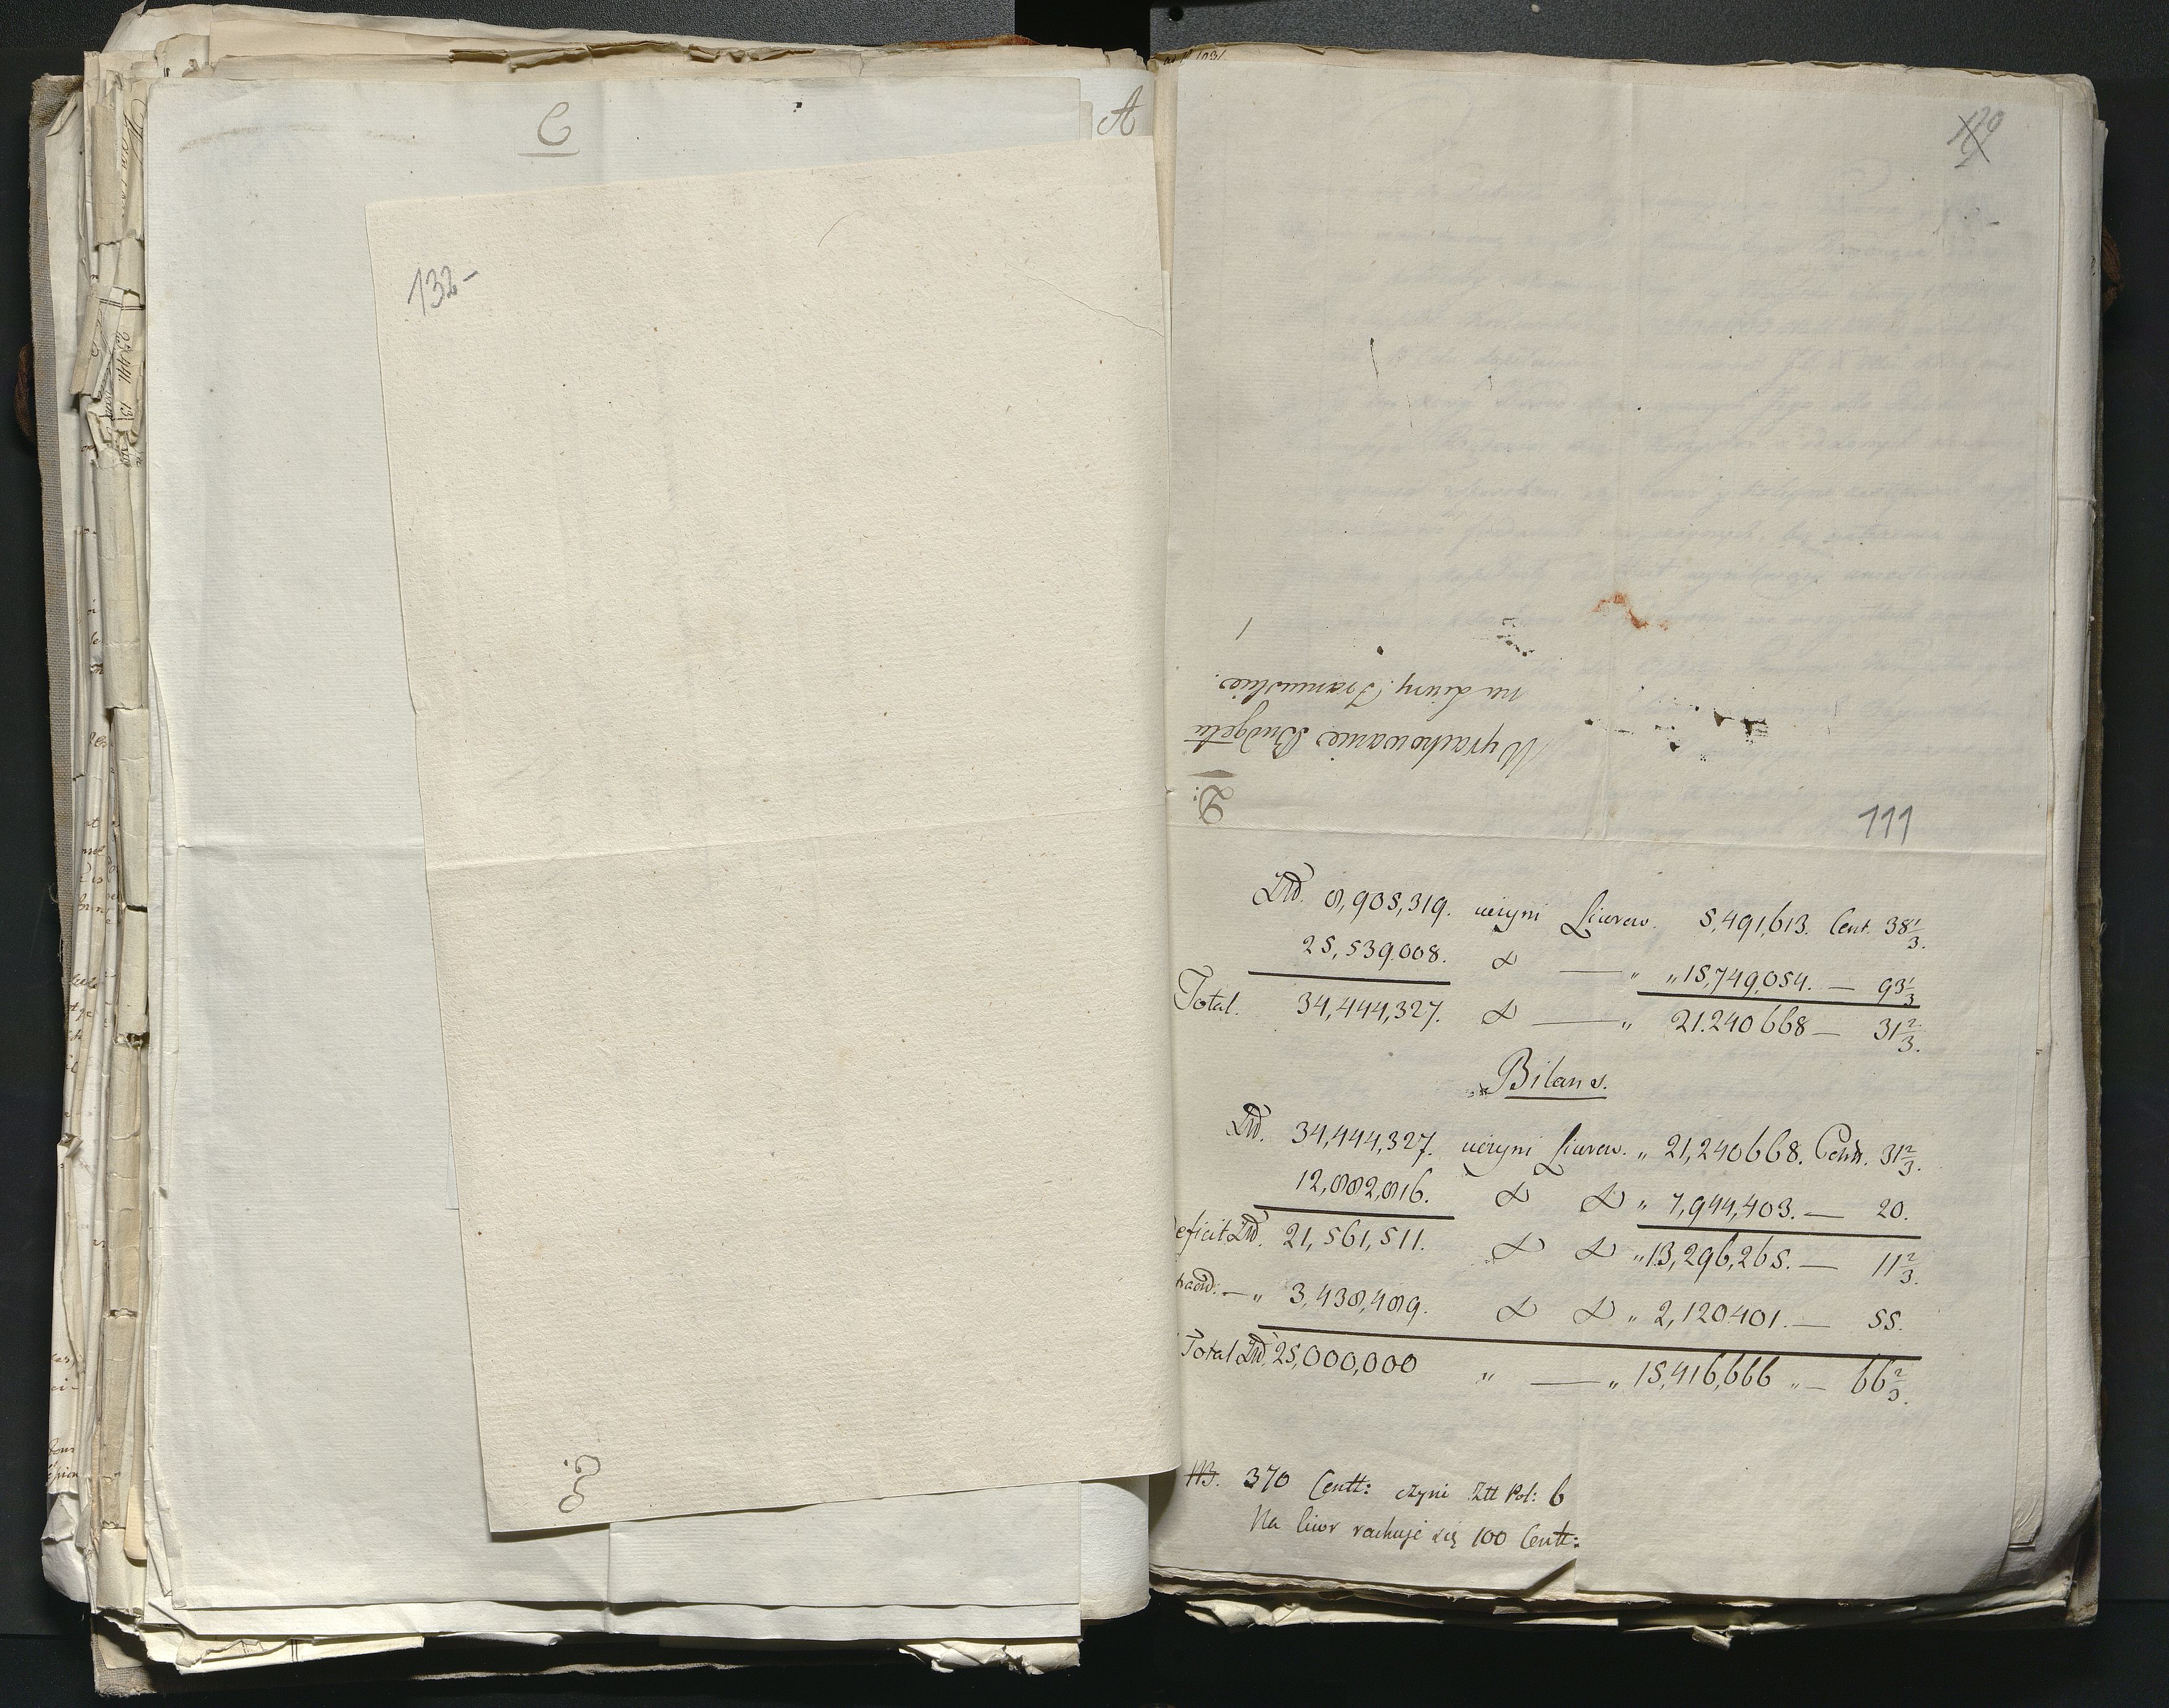 C
A
132-
111
D:
Wyrachowanie Budgetu
na Liwry Francuskie.
Złł. 8,905,319. uczyni Liwrow. 5,491,613. Cent. 38 1/3.
25,539.008. d° — " " 15,749,054. — 93 1/3
Total. 34,444,327. d° — " 21.240668 — 31 2/3.
Bilans.
Złł. 34,444,327. uczyni Liwrow. " 21,240668. Cent. 31 2/3.
12,882,816. d° d° " 7,944,403. — 20.
eficit Złł. 21,561,511. d° d° " 13,296,265. — 11 2/3.
— " 3,438,489. d° d° " 2,120401. — 55.
Total Złł. 25,000,000 " — " 15,416,666 " — 66 2/3.
NB. 370 Centt: czyni Ztt Pol: 6
Na liwr rachuje się 100 Centt: